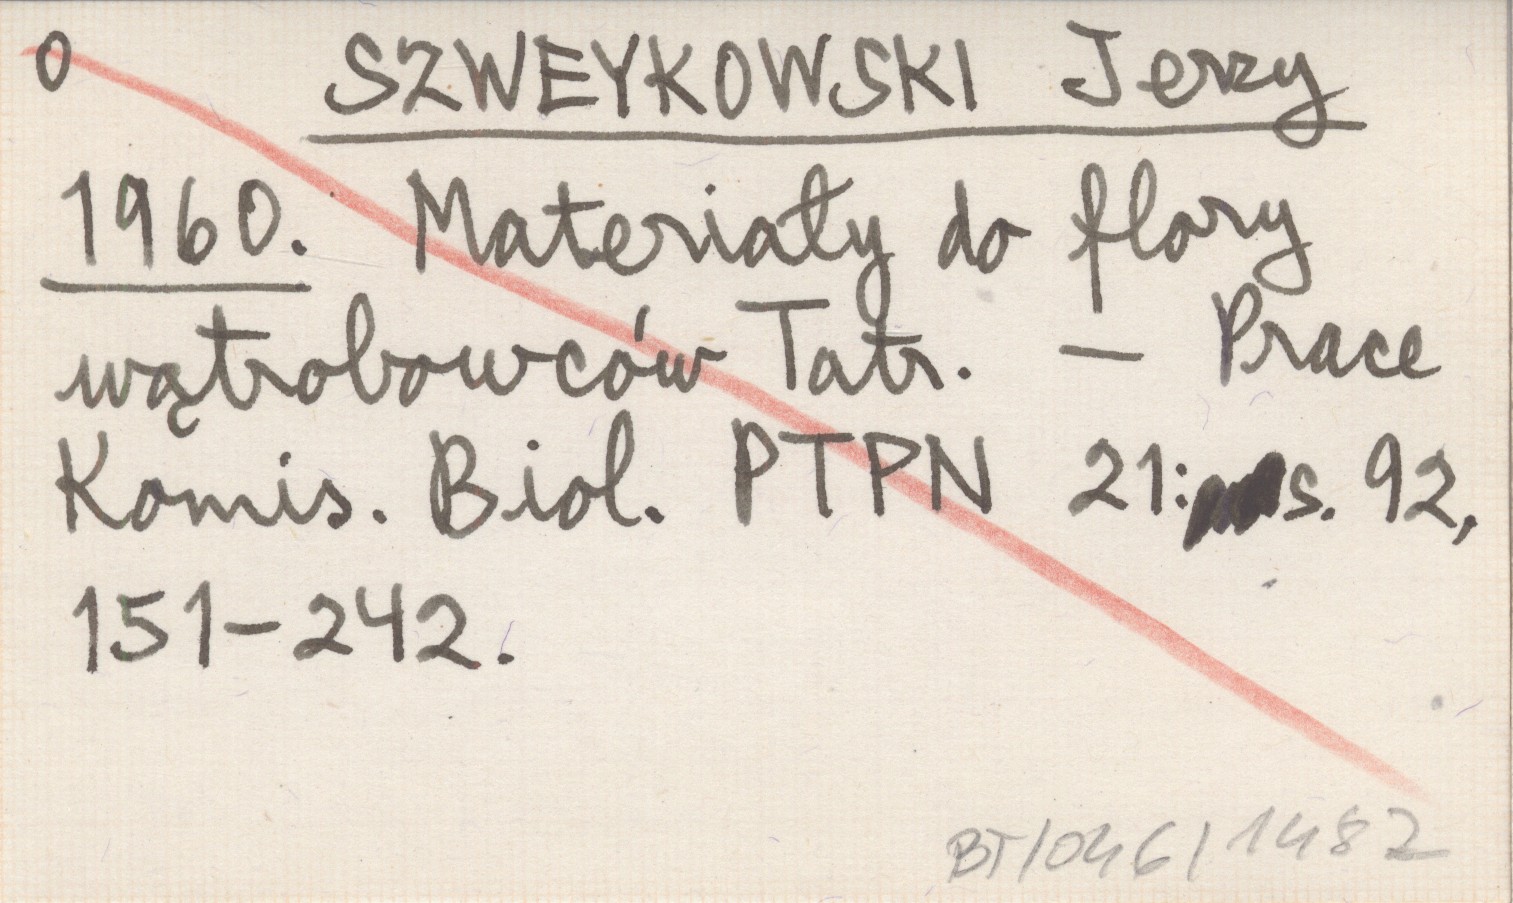 0 SZWEYKOWSKI Jerzy
1960. Materiały do flory
wątrobowców Tatr. — Prace
Komis. Biol. PTPN 21: s. 92,
151-242.
BT/046/1482